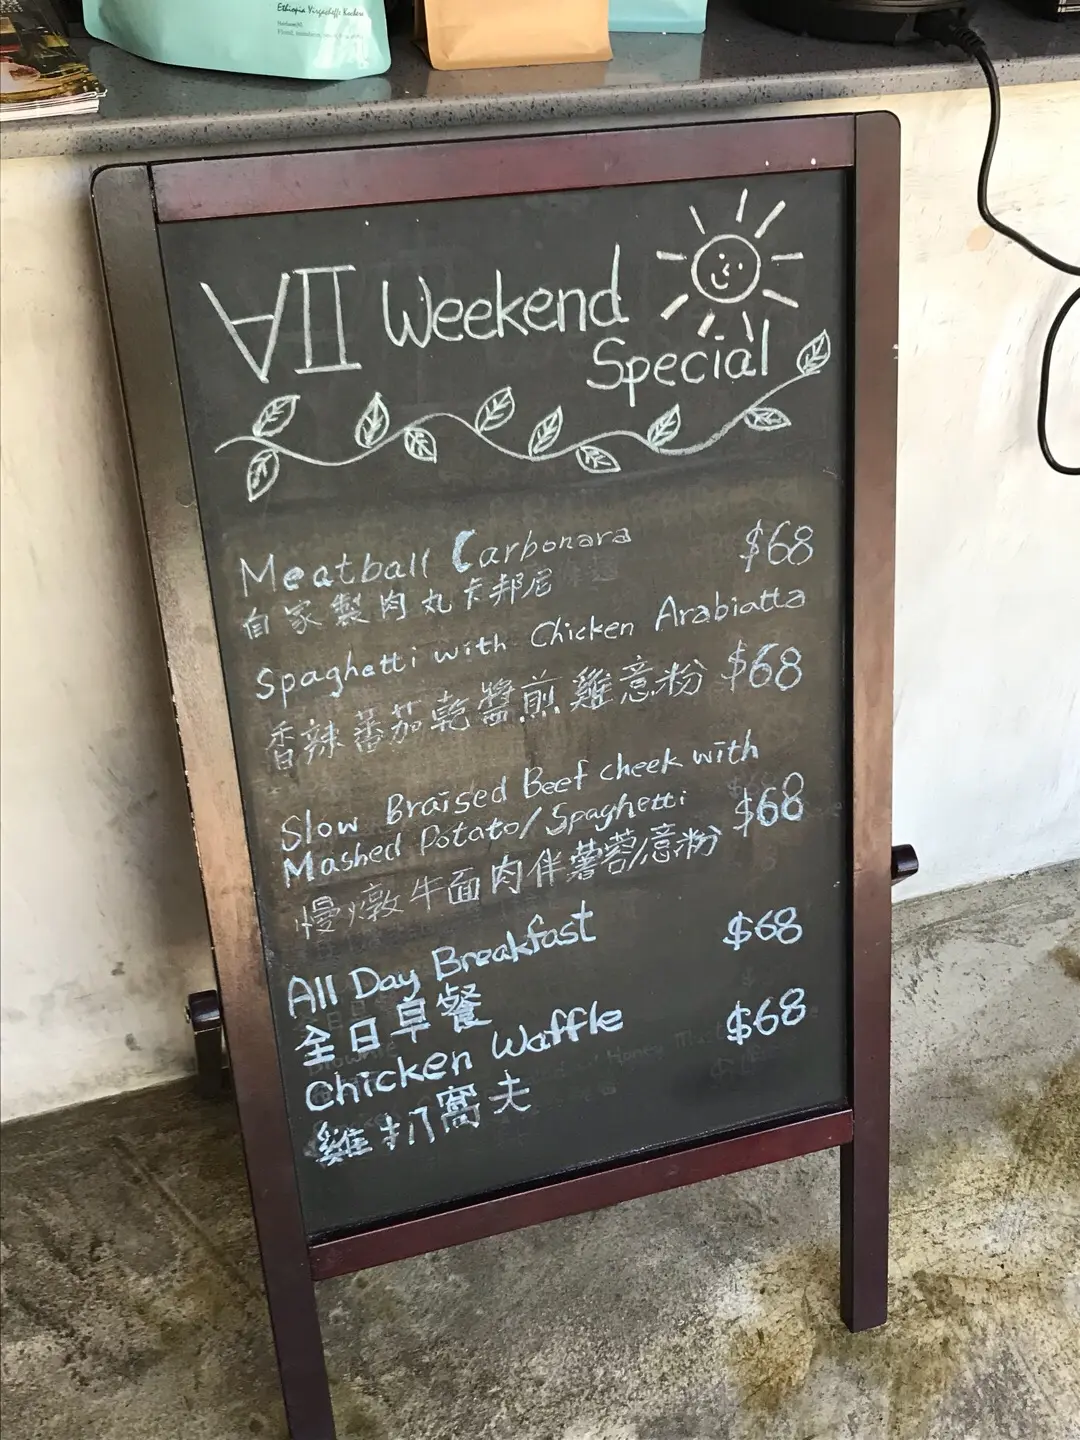 Ethiopia Yirgacheffe Kochere
VII Weekend
Special
Meatball Carbonara $68
自家製肉丸卡邦尼
Spaghetti with Chicken Arabiatta
香辣蕃茄乾醬煎雞意粉 $68
Slow Braised Beef cheek with
Mashed Potato/Spaghetti $68
慢燉牛面肉伴薯蓉/意粉
All Day Breakfast $68
全日早餐
Chicken Waffle $68
雞扒窩夫